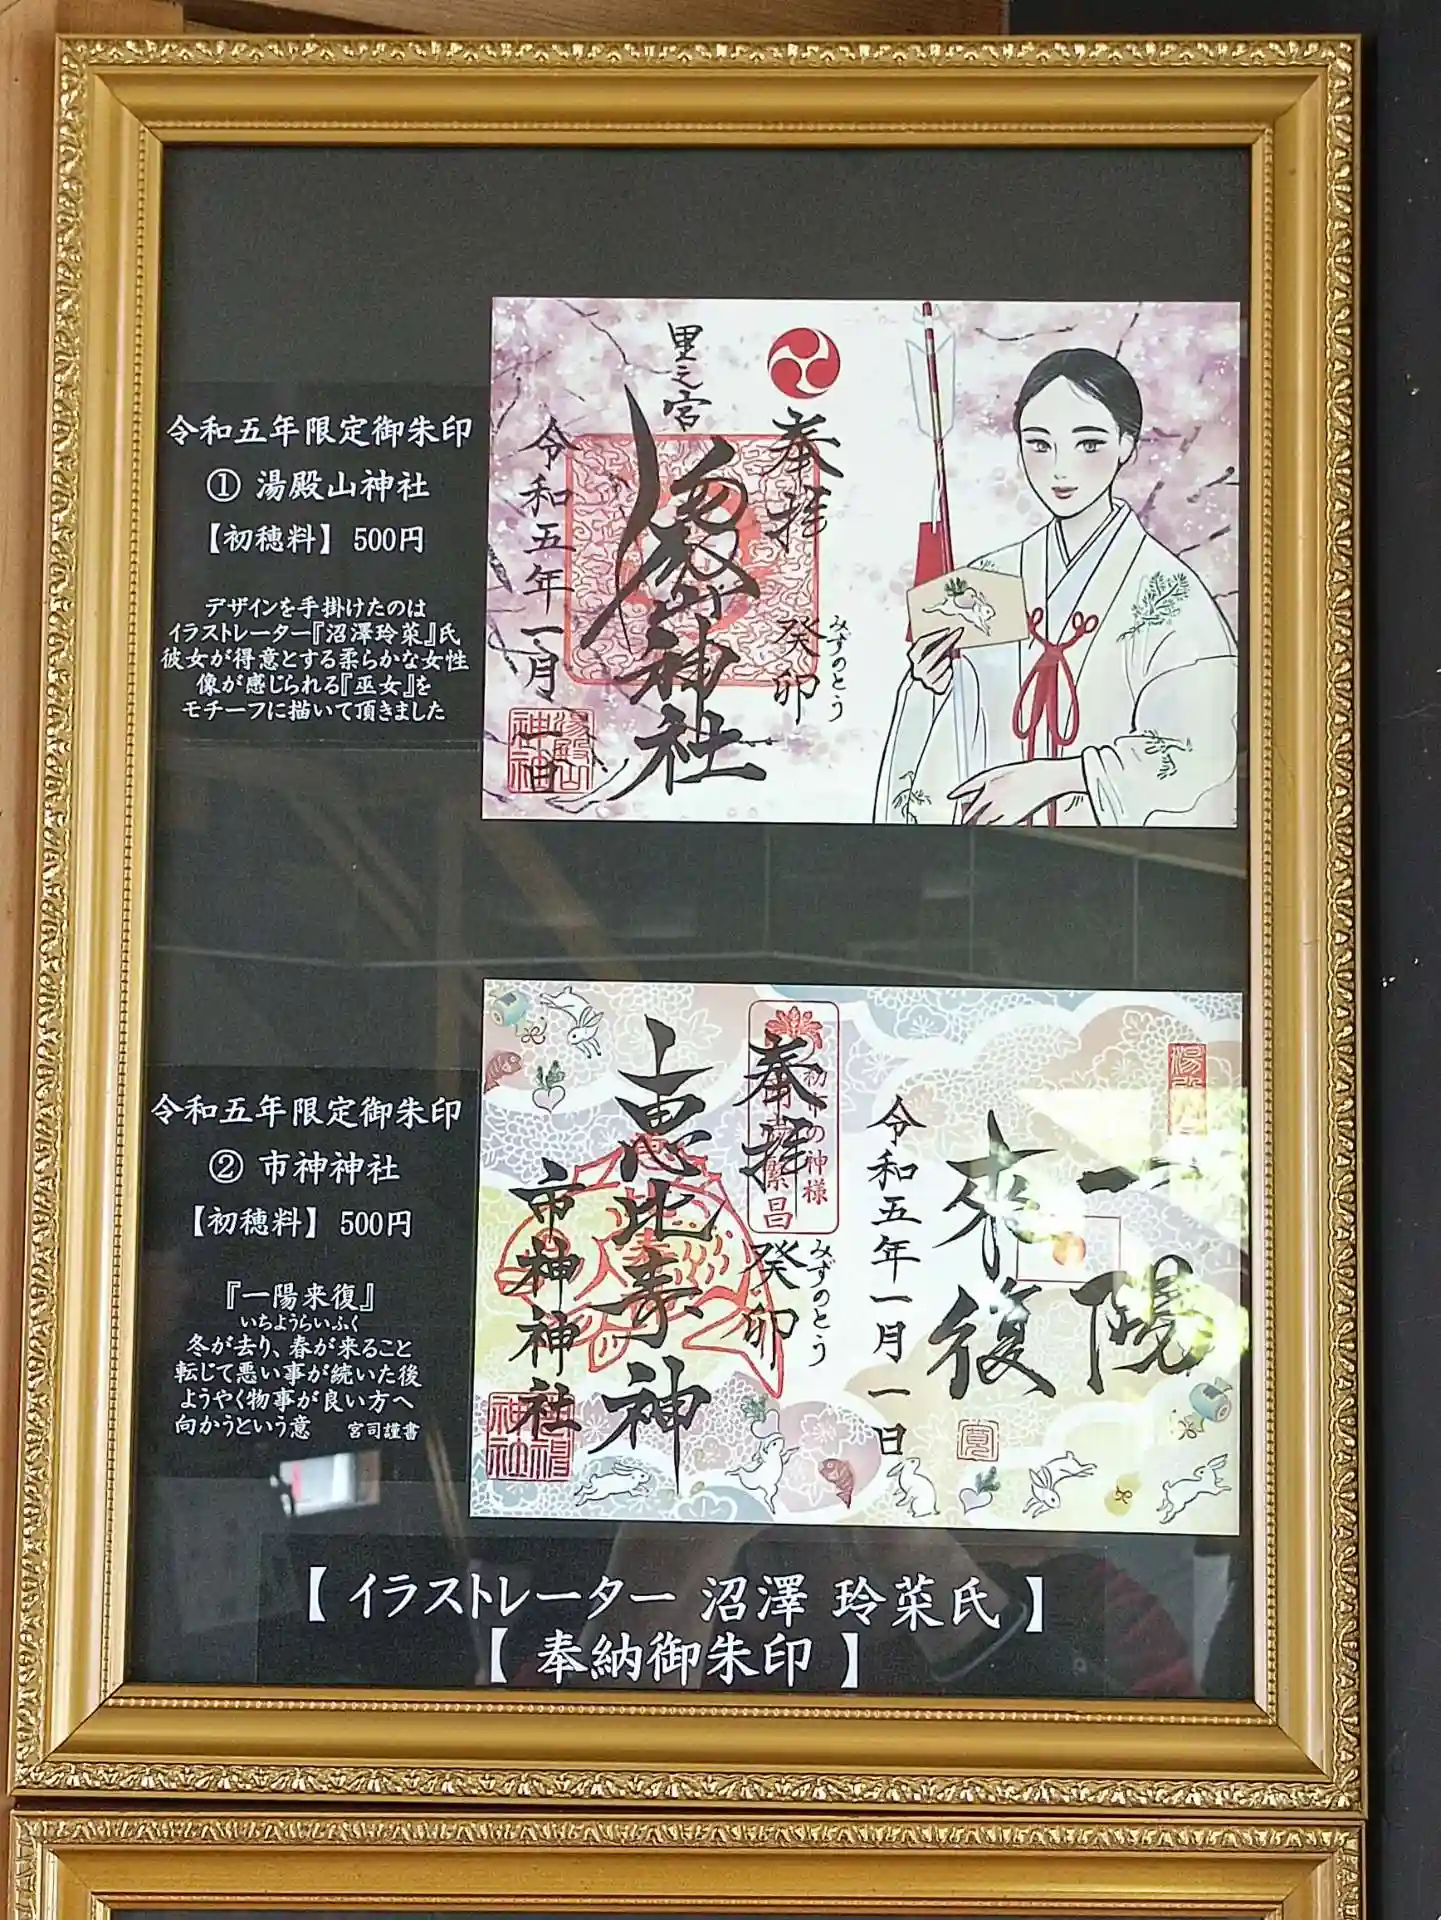 令和五年限定御朱印
① 湯殿山神社
【初穂料】 500円
デザインを手掛けたのは
イラストレーター『沼澤玲菜』氏
彼女が得意とする柔らかな女性
像が感じられる『巫女』を
モチーフに描いて頂きました
奉拝
癸卯
みずのとう
里之宮
湯殿山神社
令和五年一月一日
湯殿山神社
令和五年限定御朱印
② 市神神社
【初穂料】 500円
『一陽来復』
いちようらいふく
冬が去り、春が来ること
転じて悪い事が続いた後
ようやく物事が良い方へ
向かうという意 宮司謹書
一陽
来復
令和五年一月一日
奉拝
癸卯
みずのとう
恵比寿神
市神神社
【 イラストレーター 沼澤 玲菜氏 】
【 奉納御朱印 】